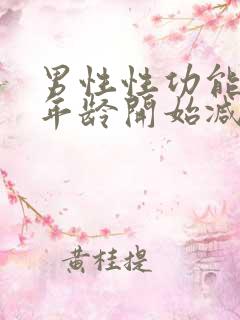 男性性功能
年龄開始减
黄桂提